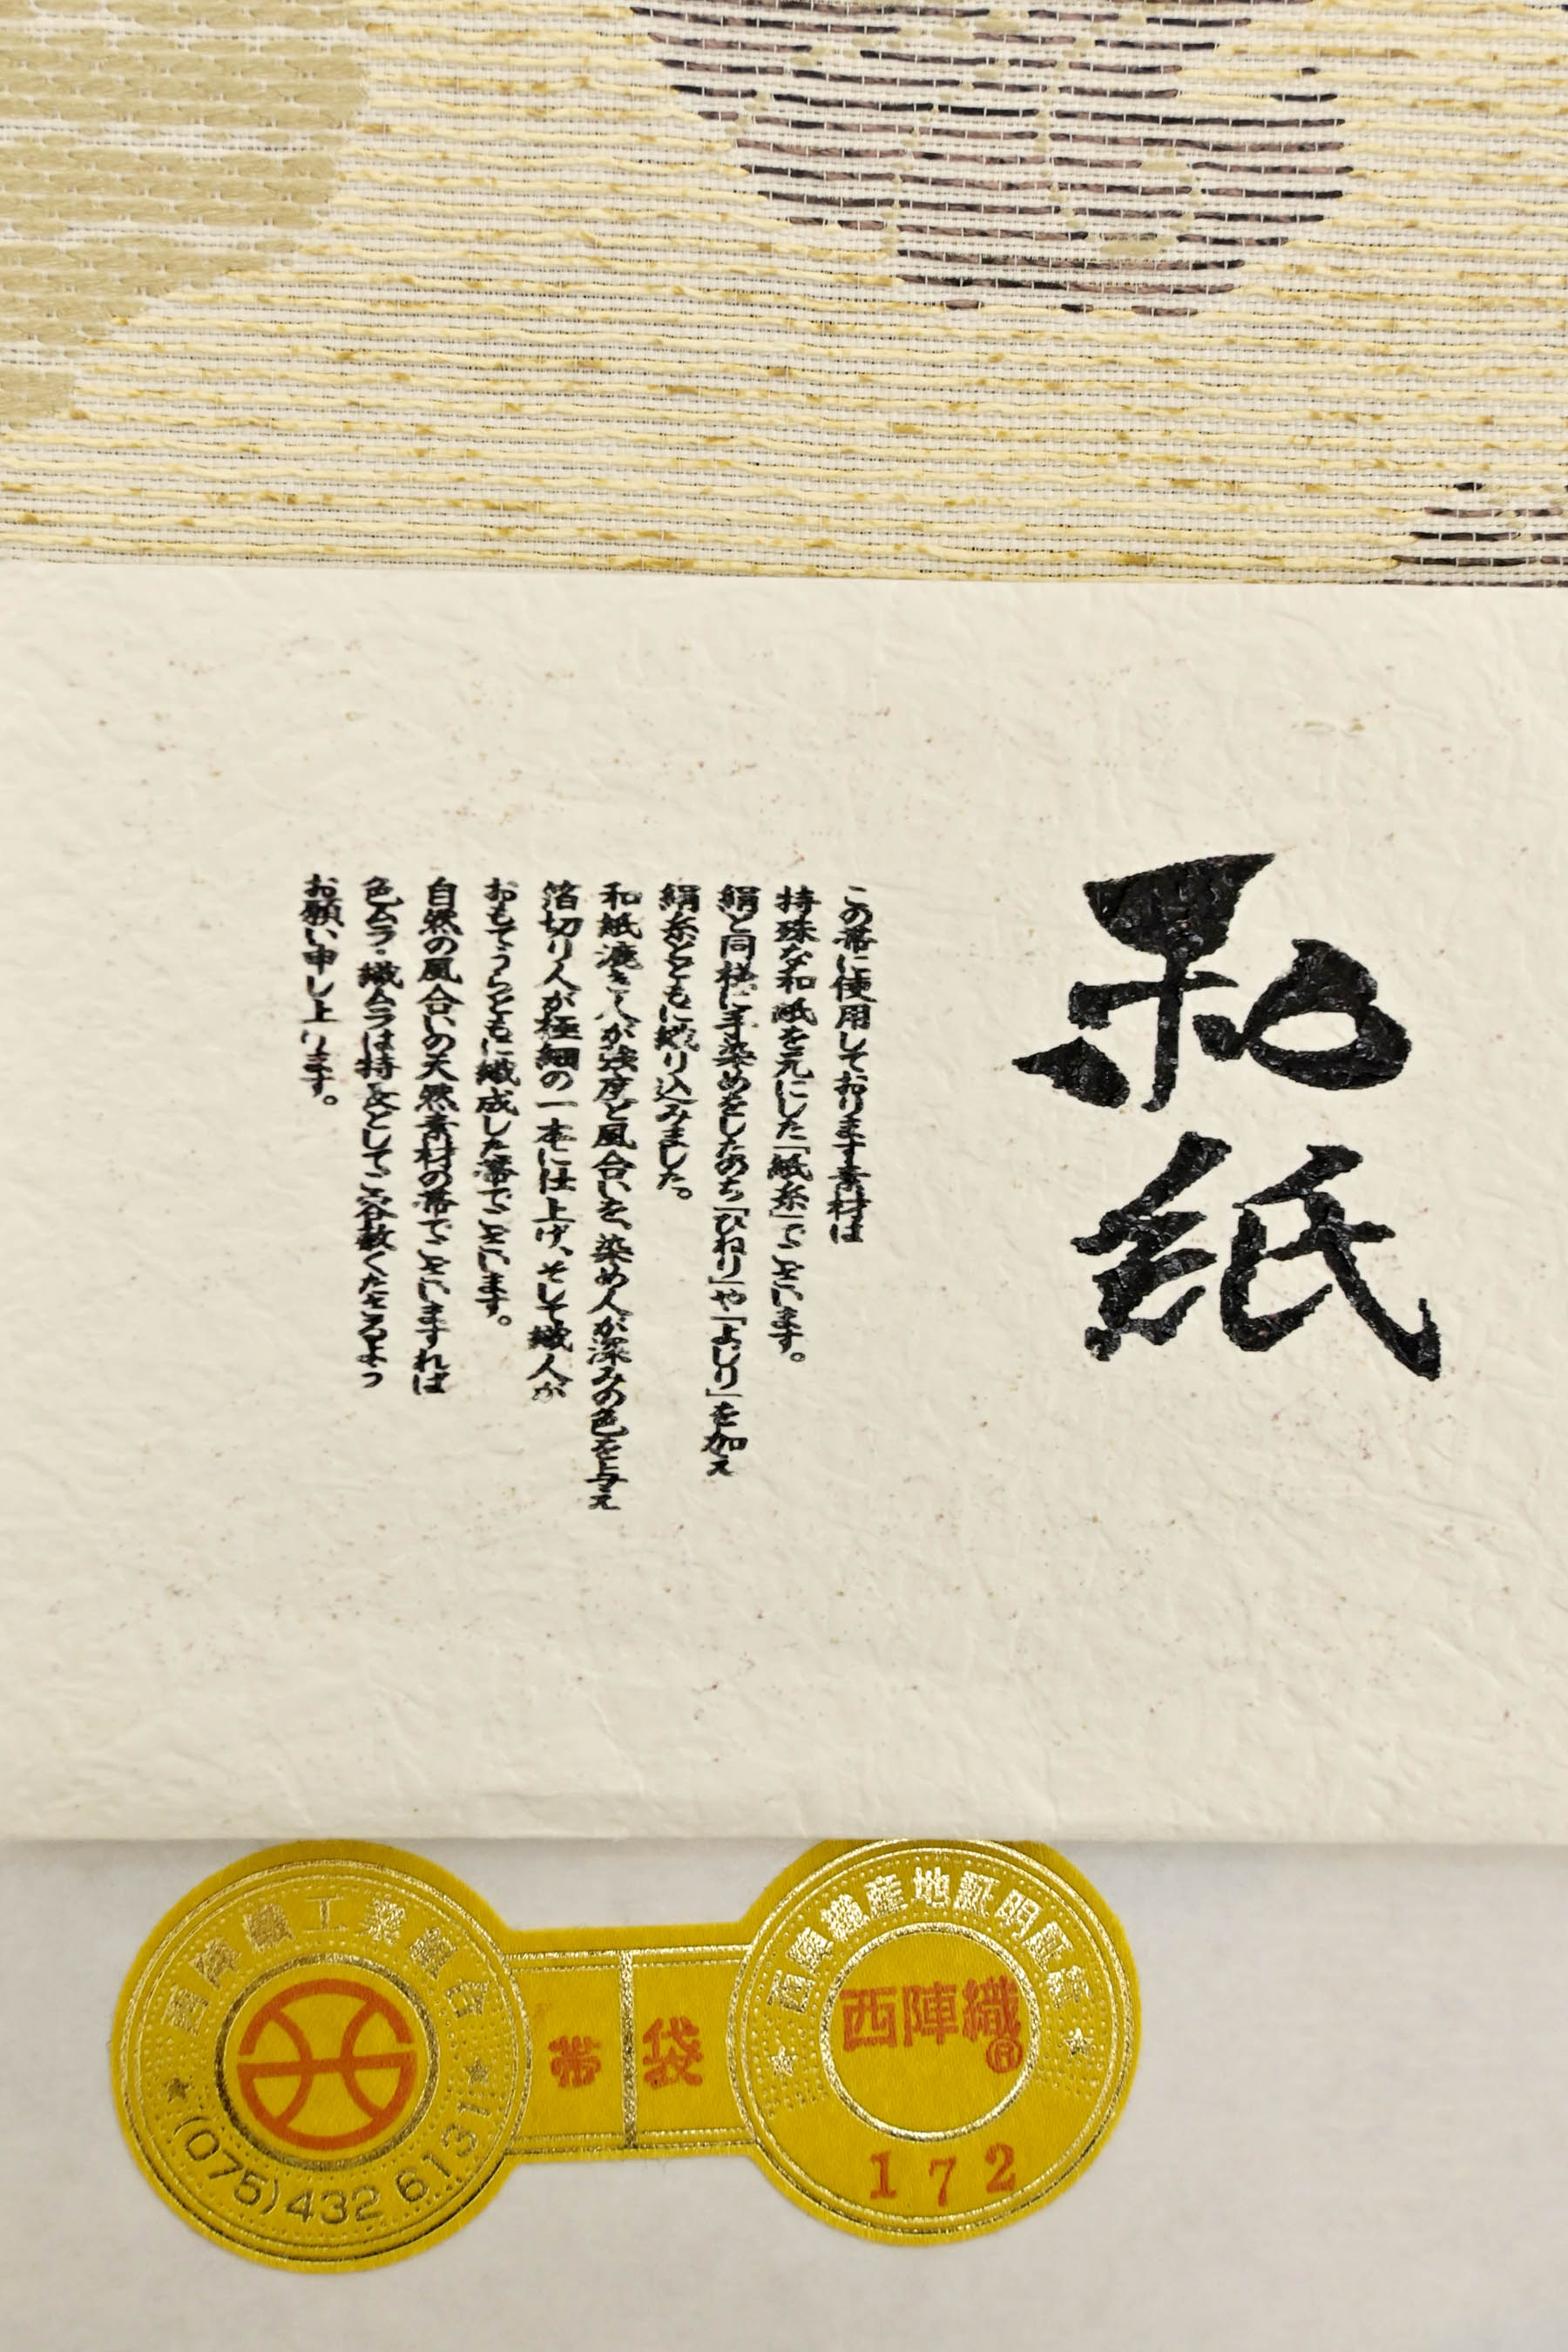 和紙
この帯に使用しております素材は
特殊な和紙を元にした「紙糸」でございます。
絹と同様に手染めをしたのち「ひねり」や「よじり」を加え
絹糸とともに織り込みました。
和紙漉き人が強度と風合いを、染め人が深みの色を与え
箔切り人が極細の一本に仕上げ、そして織人が
おもてうらともに織成した帯でございます。
自然の風合いの天然素材の帯でございますれば
色ムラ・織ムラは特長としてご容赦くださるよう
お願い申し上げます。
西陣織工業組合
(075)432 6131
帯 袋
西陣織産地証明証紙
西陣織®
172